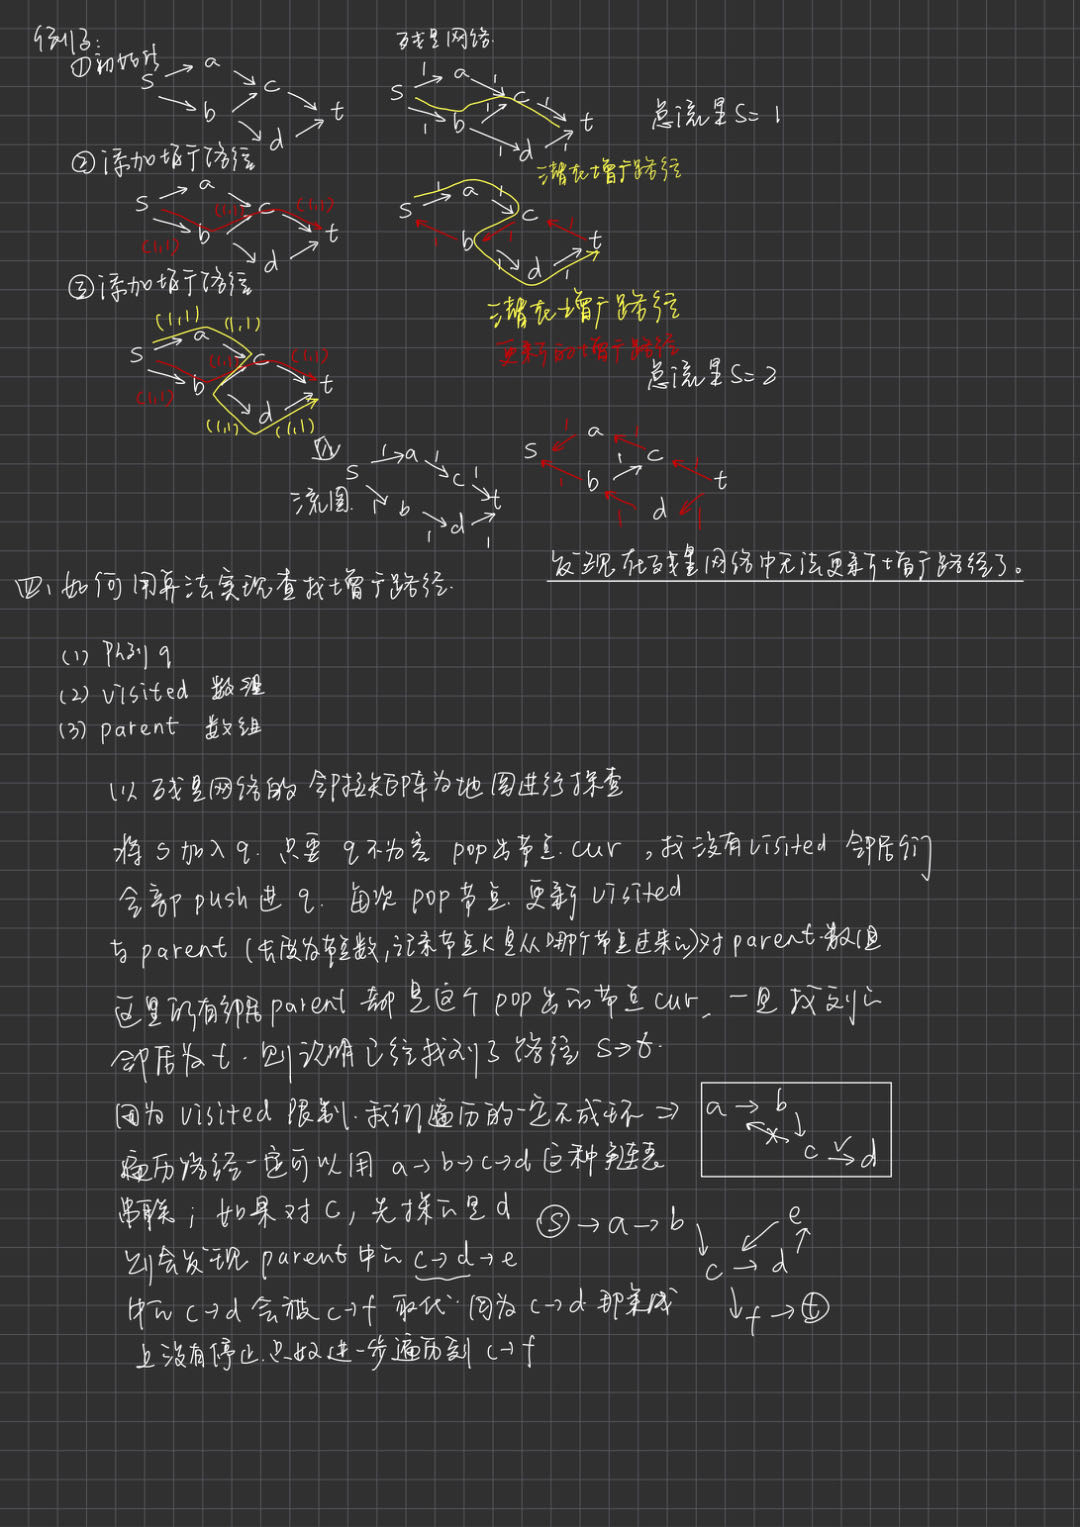 例子：
①初始
s a c b d t
残量网络
s 1 a 1 c 1 t 1 b 1 1 d 1
总流量S=1
潜在增广路径
②添加增广路径
s a c b d t (1,1) (1,1) (1,1)
s 1 a 1 c 1 b 1 1 1 d 1 t
潜在增广路径
更新的增广路径
总流量S=2
③添加增广路径
(1,1) (1,1)
s a c b d t (1,1) (1,1) (1,1)
(1,1) (1,1)
流图
s 1 a 1 c 1 t 1 b 1 d 1
s 1 a 1 c 1 b 1 1 1 d 1 t
发现在残量网络中无法更新增广路径了。
四、如何用算法实现查找增广路径.
(1) 队列 q
(2) visited 数组
(3) parent 数组
以残量网络的邻接矩阵为地图进行探查
将 s 加入 q. 只要 q 不为空 pop出节点 cur ,找没有visited 邻居们
全部 push 进 q. 每次 pop 节点. 更新 visited
与 parent (长度为节点数,记录节点K是从哪个节点过来的)对parent数组
这里所有邻居parent 都是这个 pop 出的节点 cur, 一旦找到的
邻居为 t. 则说明已经找到了路径 s→t.
因为 visited 限制. 我们遍历的一定不成环 ⇒
遍历路径一定可以用 a→b→c→d 这种
串联; 如果对 c, 先探的是 d
则会发现 parent 中的 c→d→e
中的 c→d 会被 c→f 取代. 因为 c→d 那条线
上没有停止.只好进一步遍历到 c→f
a → b
× c → d
ⓢ → a → b e
c → d
f → ⓣ